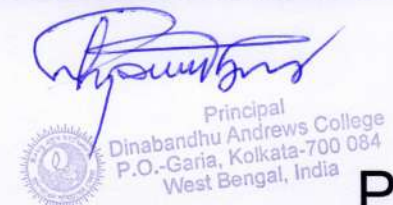 Principal
Dinabandhu Andrews College
P.O.-Garia, Kolkata-700 084
West Bengal, India
P